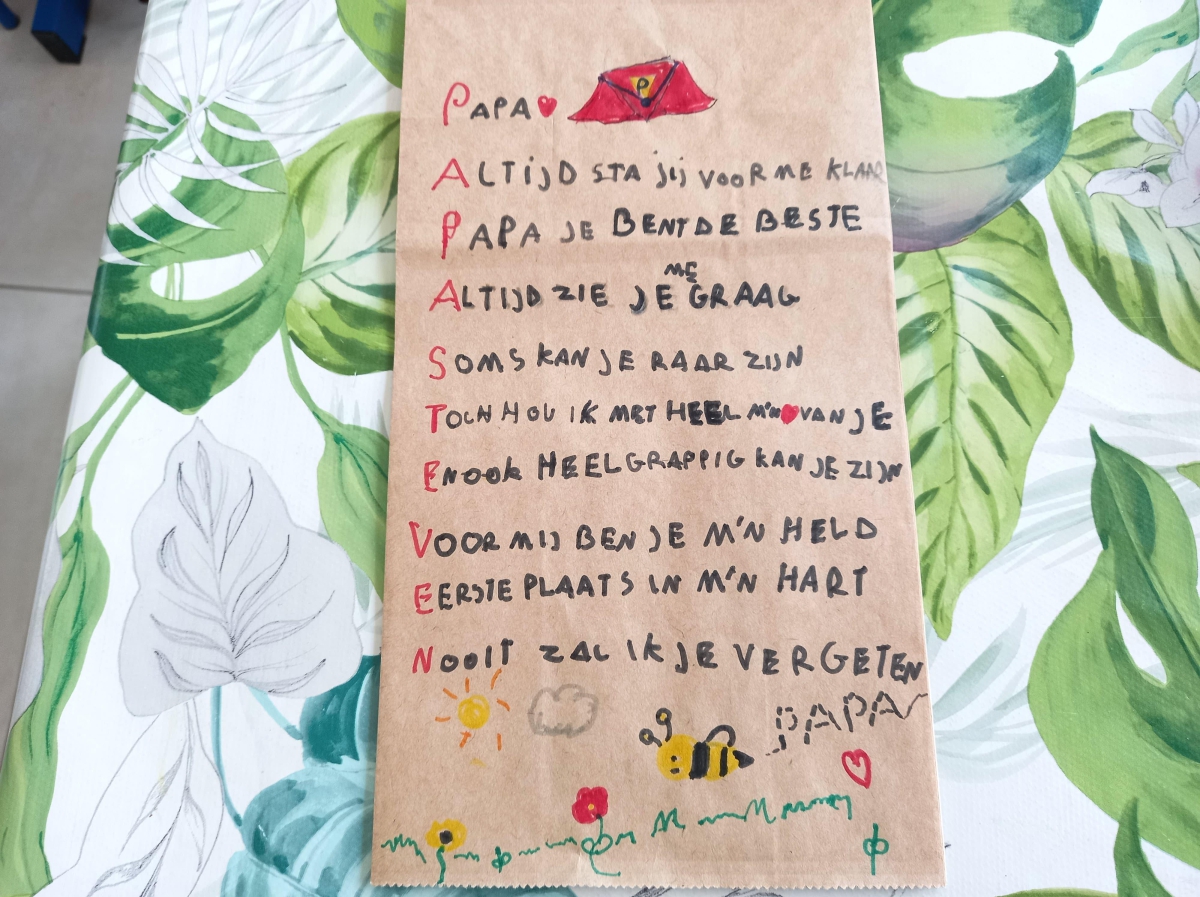 PAPA
P
ALTIJD STA JIJ VOOR ME KLAAR
PAPA JE BENT DE BESTE
ALTIJD ZIE JE ME GRAAG
SOMS KAN JE RAAR ZIJN
TOCH HOU IK MET HEEL M'N VAN JE
EN OOK HEEL GRAPPIG KAN JE ZIJN
VOOR MIJ BEN JE M'N HELD
EERSTE PLAATS IN M'N HART
NOOIT ZAL IK JE VERGETEN
PAPA